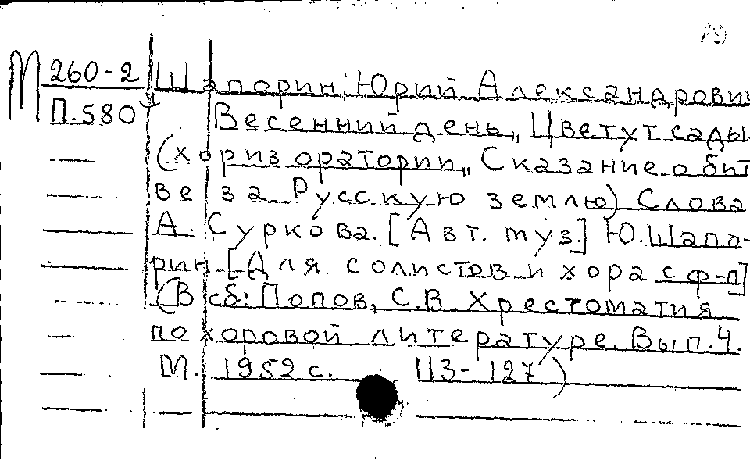 79
М 260-2 Шапорин, Юрий Александрович
П.580 Весенний день, "Цветут сады
(хор из оратории "Сказание о бит
ве за Русскую землю) Слова
А. Суркова. [Авт. муз.] Ю. Шапо-
рин. [Для солистов и хора с ф-п]
(В сб: Попов, С.В. Хрестоматия
по хоровой литературе. Вып. 4.
М. 1952 с. 113-127)